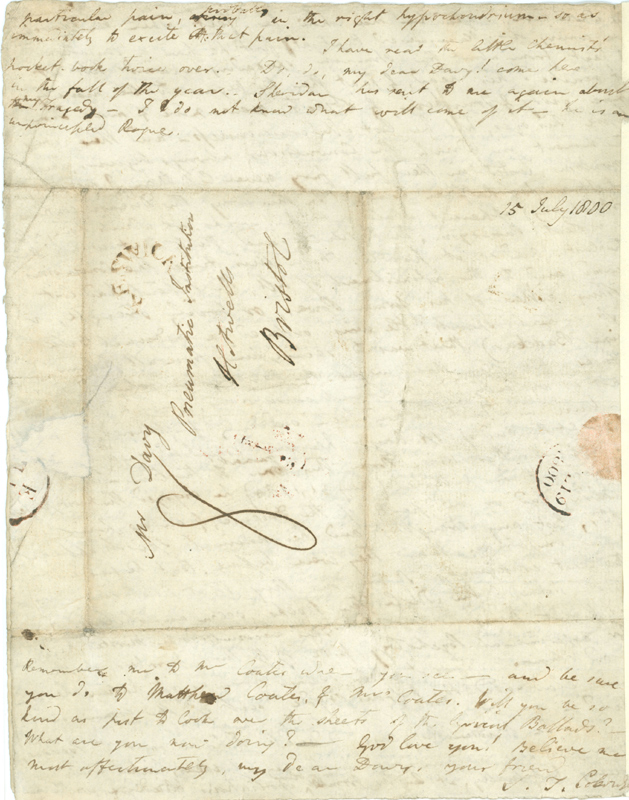 particular pain, probably in the right hypochondrium — so as
immediately to excite that pain.
I have read the little Chemist's
pocket-book twice over. Do, do, my dear Davy! come here
in the fall of the year. Sheridan has sent to me again about
my Tragedy — I do not know what will come of it — he is an
unprincipled Rogue.
15 July 1800
Mr Davy
Pneumatic Institution
Hotwells
Bristol
8
Remember me to Mr Coates when you see — and be sure
you do to Matthew Coates, & Mrs Coates. Will you be so
kind as just to look over the sheets of the Lyrical Ballads? —
What are you now doing? — God love you! Believe me
most affectionately, my dear Davy, your friend
S. T. Coleridge